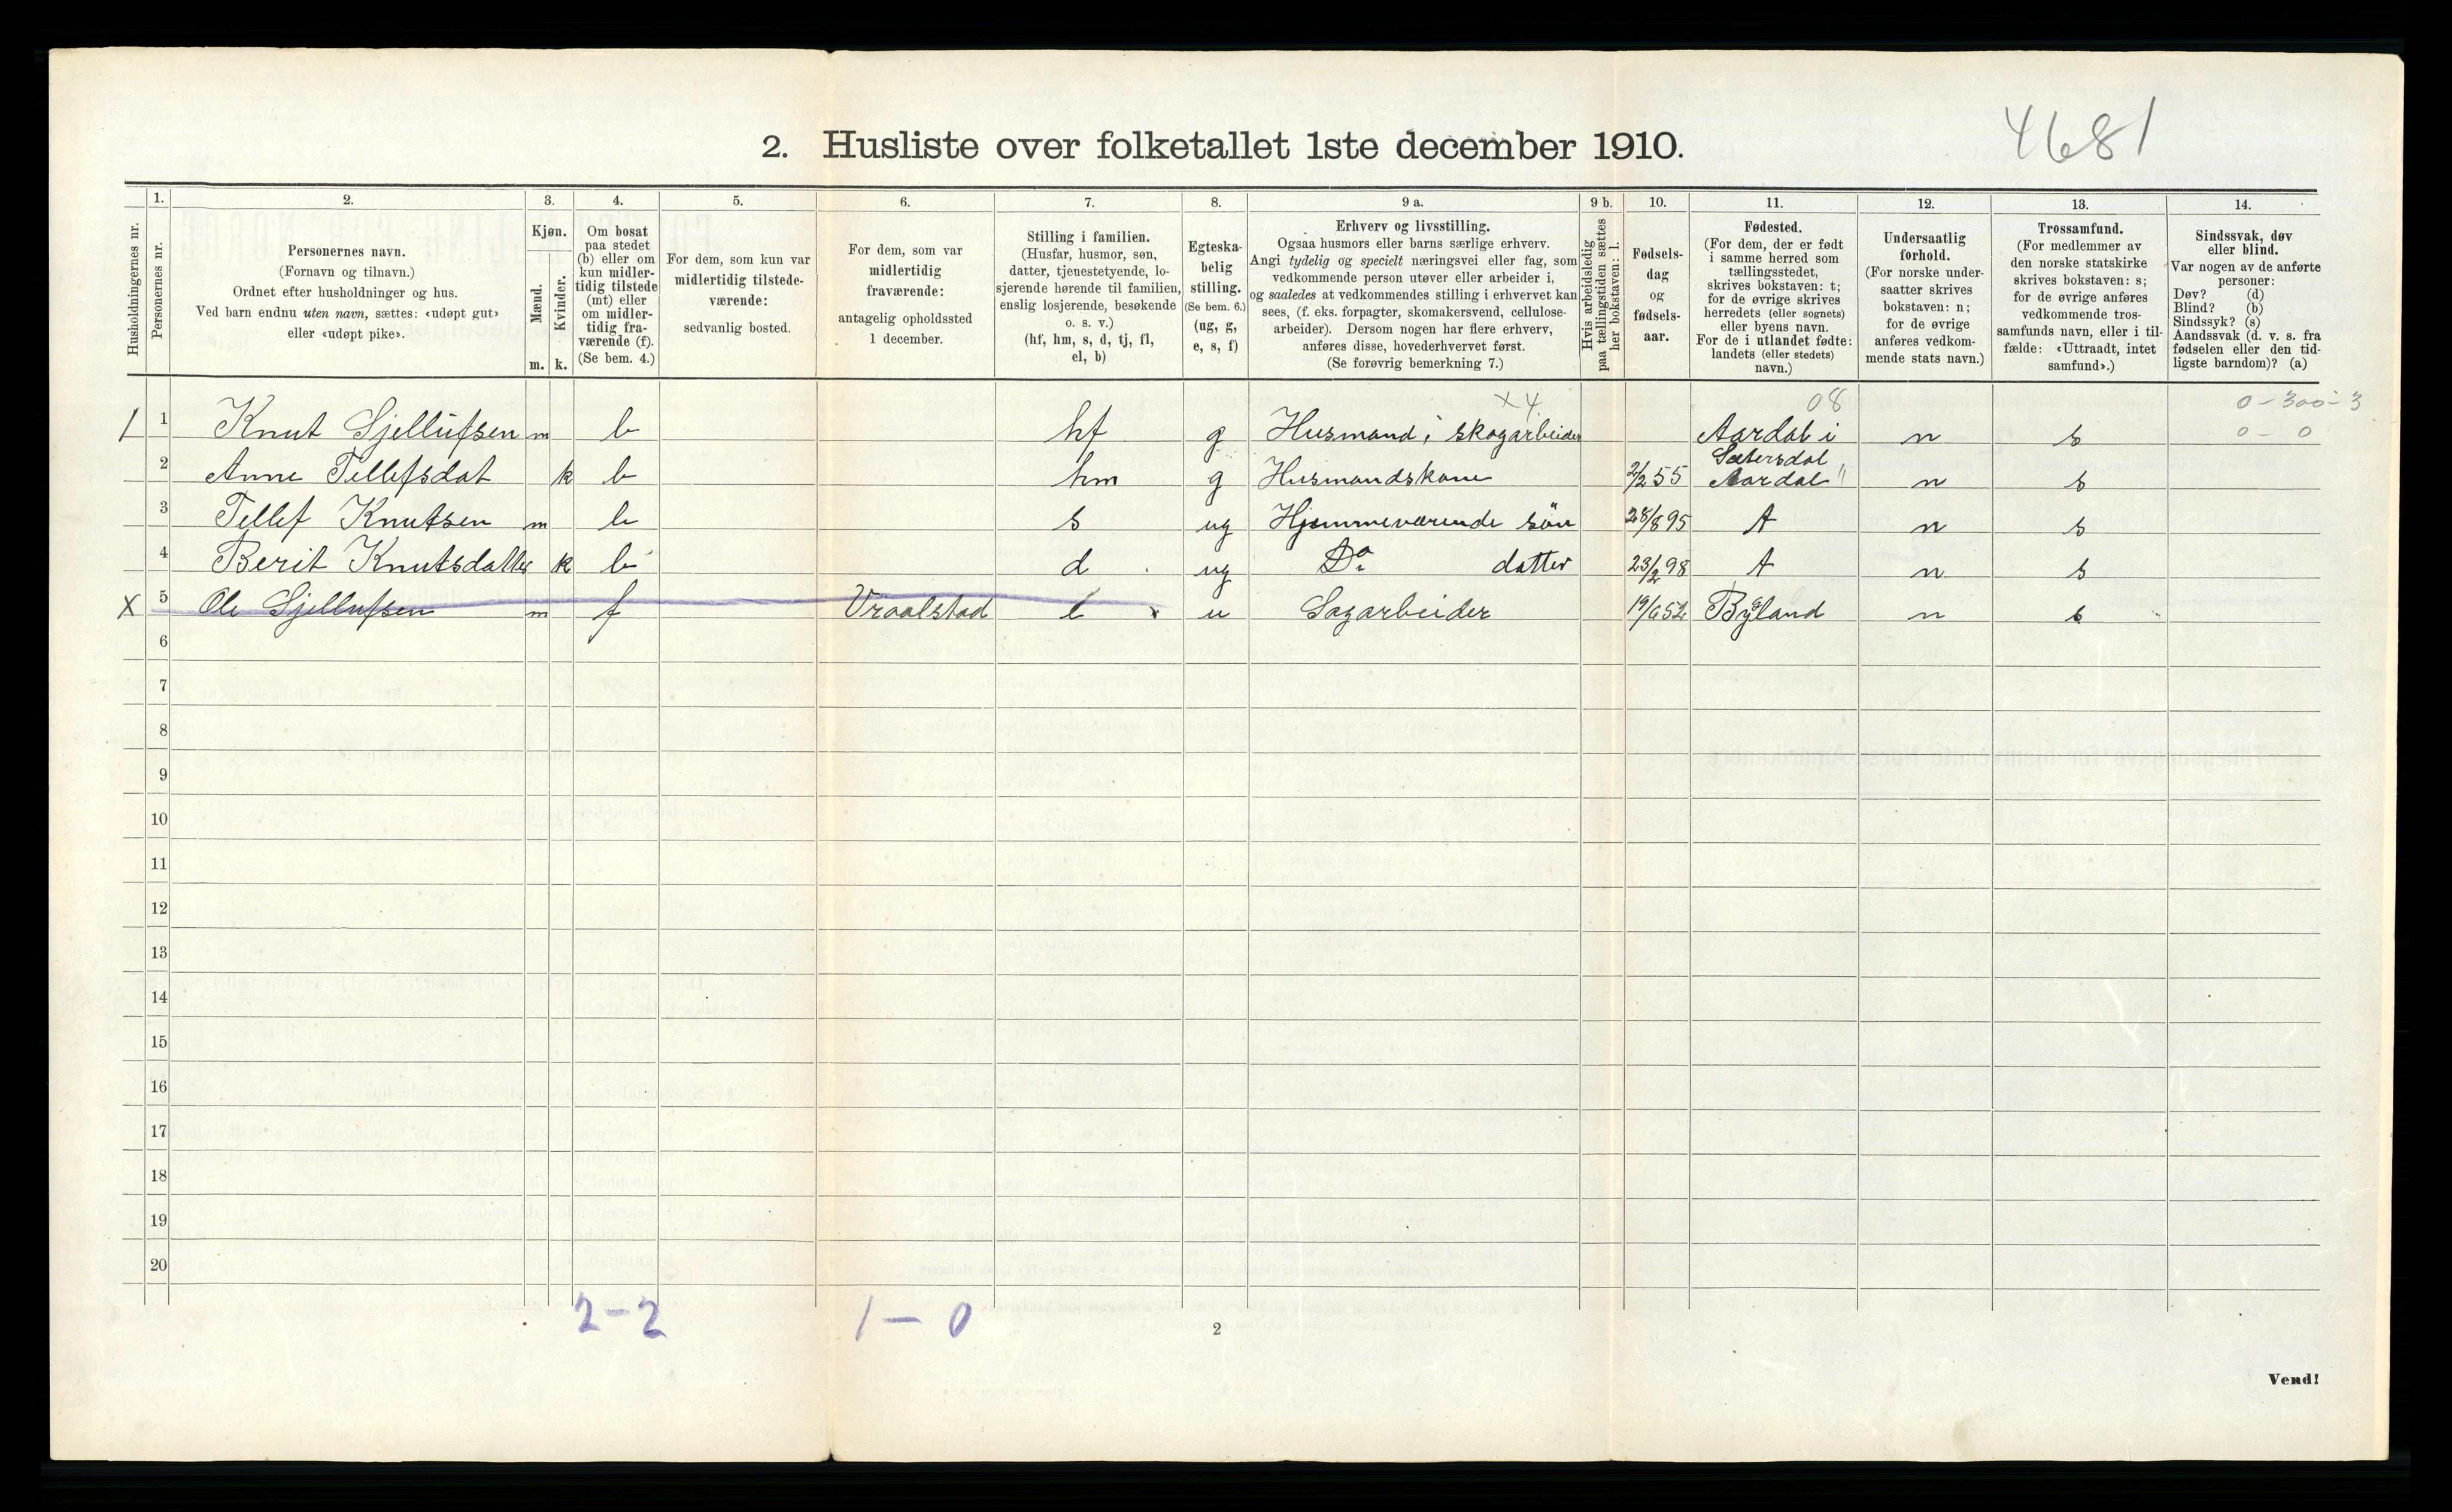 4681
2. Husliste over folketallet 1ste december 1910.
Husholdningernes nr.
1.
Personernes nr.
2.
Personernes navn.
(Fornavn og tilnavn.)
Ordnet efter husholdninger og hus.
Ved barn endnu uten navn, sættes: «udøpt gut»
eller «udøpt pike».
3.
Kjøn.
Mænd.
Kvinder.
m. k.
4.
Om bosat
paa stedet
(b) eller om
kun midler-
tidig tilstede
(mt) eller
om midler-
tidig fra-
værende (f).
(Se bem. 4.)
5.
For dem, som kun var
midlertidig tilstede-
værende:
sedvanlig bosted.
6.
For dem, som var
midlertidig
fraværende:
antagelig opholdssted
1 december.
7.
Stilling i familien.
(Husfar, husmor, søn,
datter, tjenestetyende, lo-
sjerende hørende til familien,
enslig losjerende, besøkende
o. s. v.)
(hf, hm, s, d, tj, fl,
el, b)
8.
Egteska-
belig
stilling.
(Se bem. 6.)
(ug, g,
e, s, f)
9 a.
Erhverv og livsstilling.
Ogsaa husmors eller barns særlige erhverv.
Angi tydelig og specielt næringsvei eller fag, som
vedkommende person utøver eller arbeider i,
og saaledes at vedkommendes stilling i erhvervet kan
sees, (f. eks. forpagter, skomakersvend, cellulose-
arbeider). Dersom nogen har flere erhverv,
anføres disse, hovederhvervet først.
(Se forøvrig bemerkning 7.)
9 b.
Hvis arbeidsledig
paa tællingstiden sættes
her bokstaven: l.
10.
Fødsels-
dag
og
fødsels-
aar.
11.
Fødested.
(For dem, der er født
i samme herred som
tællingsstedet,
skrives bokstaven: t;
for de øvrige skrives
herredets (eller sognets)
eller byens navn.
For de i utlandet fødte:
landets (eller stedets)
navn.)
12.
Undersaatlig
forhold.
(For norske under-
saatter skrives
bokstaven: n;
for de øvrige
anføres vedkom-
mende stats navn.)
13.
Trossamfund.
(For medlemmer av
den norske statskirke
skrives bokstaven: s;
for de øvrige anføres
vedkommende tros-
samfunds navn, eller i til-
fælde: «Uttraadt, intet
samfund».)
14.
Sindssvak, døv
eller blind.
Var nogen av de anførte
personer:
Døv? (d)
Blind? (b)
Sindssyk? (s)
Aandssvak (d. v. s. fra
fødselen eller den tid-
ligste barndom)? (a)
x 4 08 0-300-3
1 1 Knut Gjellufsen m b hf g Husmand i skogarbeider Aardal i n s 0 - 0
Sætersdal
2 Anne Tellefsdat k b hm g Husmandskone 2/2 55 Aardal " n s
3 Tellef Knutsen m b s ug Hjemmeværende søn 28/8 95 A n s
4 Berit Knutsdatter k b d ug Do datter 23/2 98 A n s
X 5 Ole Gjellufsen m f Vraalstad l x u Sagarbeider 19/6 52 Bygland n s
6
7
8
9
10
11
12
13
14
15
16
17
18
19
20
2-2 1-0
2
Vend!